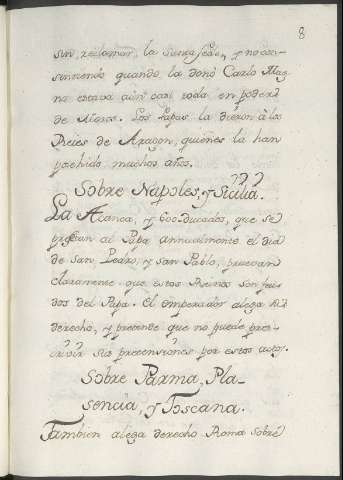 8
sin reclamar, la Santa Sede, y no ex-
sintiendo quando la donó Carlo Mag
no estava aún casi toda en poder
de Moros. Los Papas la dieron à los
Reies de Aragon, quienes la han
posehido muchos años.
Sobre Napoles, y Sicilia.
La Acanea, y 600 Ducados, que se
prestan al Papa annualmente el dia
de San Pedro, y San Pablo, pruevan
claramente que estos Reinos son feu-
dos del Papa. El emperador alega su
derecho, y pretende que no puede pres-
crivir sus pretensiones por estos actos.
Sobre Parma, Pla-
sencia, y Toscana.
Tambien alega derecho Roma sobre